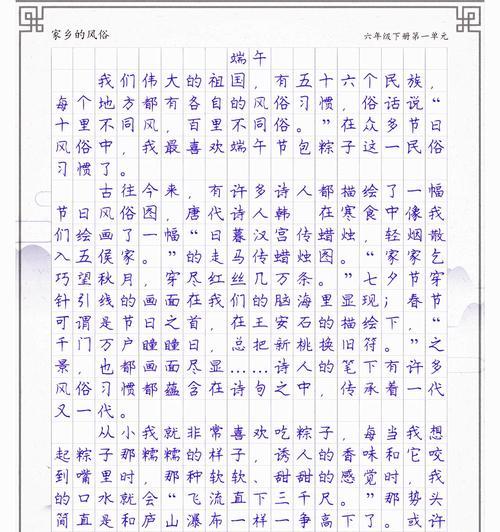 家乡的风俗
六年级下册第一单元
端午
我们伟大的祖国，有五十六个民族，
每个地方都有各自的风俗习惯，俗话说“
十里不同风，百里不同俗。”在众多节日
风俗中，我最喜欢端午节包粽子这一民俗
习惯了。
古往今来，有许多诗人都描绘了一幅
节日风俗图，唐代诗人韩 在寒食中像我
们绘画了一幅“日暮汉宫传蜡烛，轻烟散
入五侯家。”的走马传蜡烛图。“家家乞
巧望秋月，穿尽红丝几万条。”七夕节穿
针引线的画面在我们的脑海里显现；春节
可谓是节日之首，在王安石的描绘下，“
千门万户曈曈日，总把新桃换旧符。”之
景，也都画面尽显...诗人的笔下有许多
风俗习惯都蕴含在诗句之中，传承着一代
又一代。
从小我就非常喜欢吃粽子，每当我想
起粽子那糯糯的样子，诱人的香味和它咬
到嘴里时，那种软软、甜甜的感觉时，我
的口水就会“飞流直下三千尺。”那势头
简直是和庐山瀑布一样一争高下了。或许